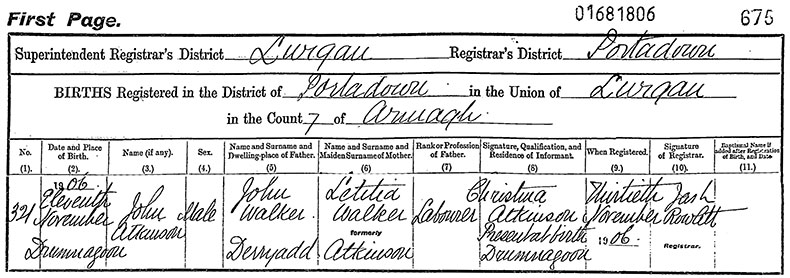 First Page.
01681806
675
Superintendent Registrar's District Lurgan Registrar's District Portadown
BIRTHS Registered in the District of Portadown in the Union of Lurgan
in the County of Armagh.
No. Date and Place of Birth. Name (if any). Sex. Name and Surname and Dwelling-place of Father. Name and Surname and Maiden Surname of Mother. Rank or Profession of Father. Signature, Qualification, and Residence of Informant. When Registered. Signature of Registrar. Baptismal Name if added after Registration of Birth, and Date
(1). (2). (3.) (4.) (5) (6) (7) (8) (9.) (10.) (11.)
321
1906.
Eleventh
November
Drumnagoon
John
Atkinson
Male
John
Walker.
Derryadd
Letitia
Walker
formerly
Atkinson
Labourer
Christina
Atkinson
Present at birth
Drumnagoon
Thirtieth
November
1906.
Rowlett
Registrar.